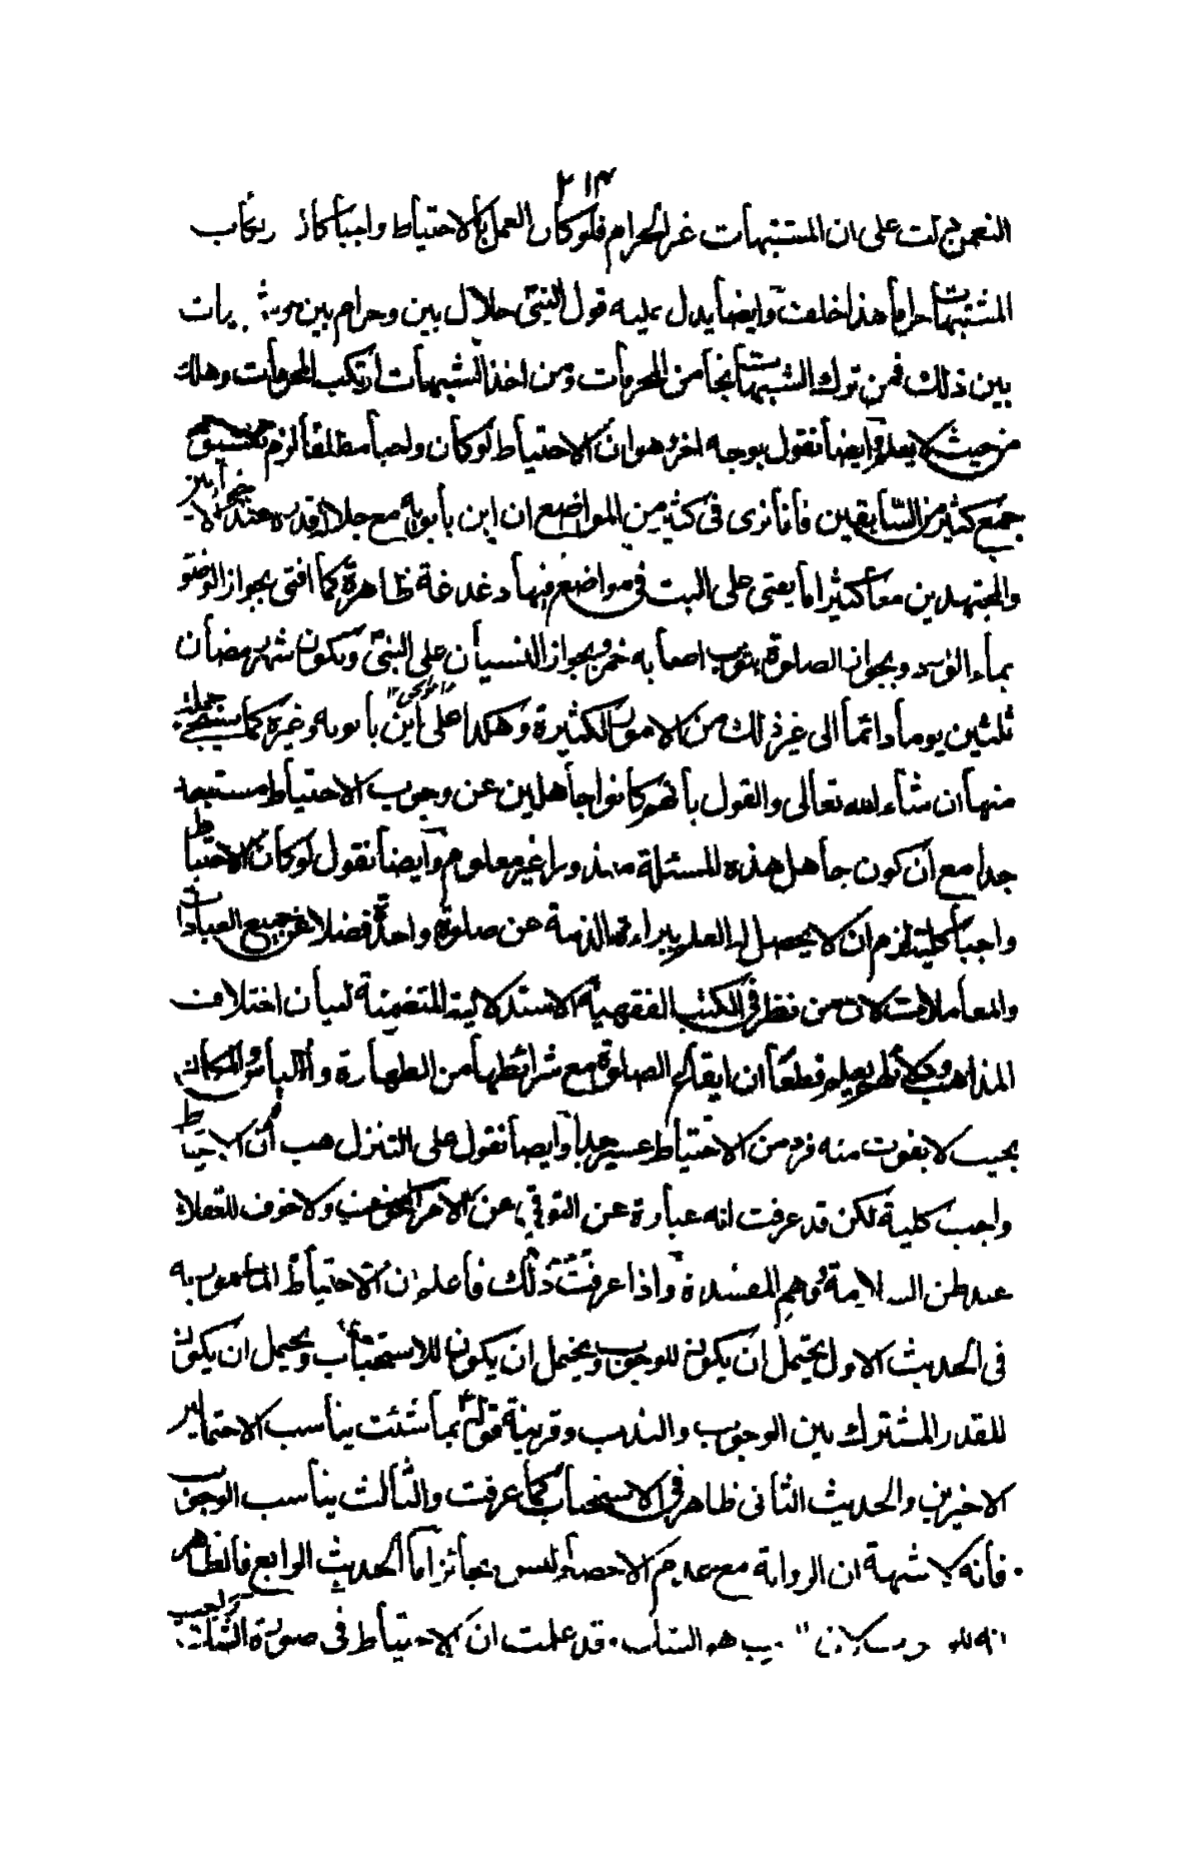 ٢١٣
على ان المشتبهات غير الحرام فلو كان العمل بالاحتياط واجبا
المشتبهات حراما هذا خلف وايضا يدل عليه قول النبى حلال بين وحرام بين
بين ذلك فمن ترك الشبهات نجا من المحرمات ومن اخذ الشبهات ارتكب المحرمات وهلك
من حيث لا يعلم وايضا نقول بوجه اخر هو ان الاحتياط لو كان واجبا مطلقا لزم تفسيق
جمع كثير من السابقين فانا نرى فى كثير من المواضع ان ابن بابويه مع جلالة قدره عند
والمجتهدين معا كثيرا ما يفتى على البت فى مواضع فيها دغدغة ظاهرة كما افتى بجواز الوضوء
بماء الورد وبجواز الصلوة بثوب اصابه خمر وبجواز النسيان على النبى وبكون شهر رمضان
ثلثين يوما دائما الى غير ذلك من الامور الكثيرة وهكذا على ابن بابويه وغيره كما سيجئ جملة
منها ان شاء الله تعالى والقول بانهم كانوا جاهلين عن وجوب الاحتياط مستبعد
جدا مع ان كون جاهل هذه المسئلة معذورا غير معلوم وايضا نقول لو كان الاحتياط
واجبا كلية لزم ان لا يحصل العلم ببراءة الذمة عن صلوة واحدة فضلا عن جميع العبادات
والمعاملات لان من نظر فى الكتب الفقهية الاستدلالية المتضمنة لبيان اختلاف
المذاهب يعلم قطعا ان ايقاع الصلوة مع شرائطها من الطهارة واللباس والمكان
بحيث لا يفوت منه فرد من الاحتياط عسير جدا وايضا نقول على التنزل هب ان الاحتياط
واجب كلية لكن قد عرفت انه عبارة عن التوقى عن الامر المخوف عنه ولا خوف للعقلاء
عند ظن السلامة وهم المفسدة واذا عرفت ذلك فاعلم ان الاحتياط المامور به
فى الحديث الاول يحتمل ان يكون للوجوب ويحتمل ان يكون للاستحباب ويحتمل ان يكون
للقدر المشترك بين الوجوب والندب وقرينة قوله بما شئت يناسب الاحتمالين
الاخيرين والحديث الثانى ظاهر فى الاستحباب كما عرفت والثالث يناسب الوجوب
فانه لا شبهة ان الرواية مع عدم الاحصاء ليس بجائز اما الحديث الرابع فالظاهر
قد علمت ان الاحتياط فى صورة